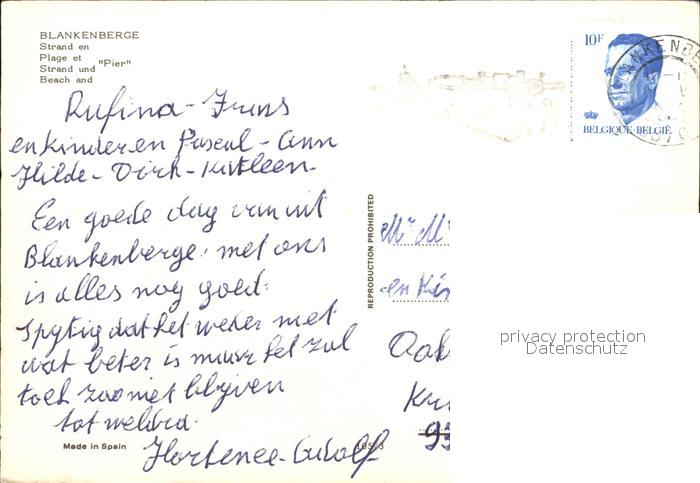 BLANKENBERGE
Strand en
Plage et
Strand und "Pier"
Beach and
10F
BELGIQUE-BELGIË
Rufina - Frans
en kinderen Pascal - Ann
Hilde - Dirk - Katleen
Een goede dag van uit
Blankenberge. met ons
is alles nog goed.
Spytig dat het weder niet
wat beter is maar het zal
toch zoo niet blijven
tot weldra.
Hortence - Adolf
Made in Spain
REPRODUCTION PROHIBITED
Mr M
en Kin
93
privacy protection
Datenschutz